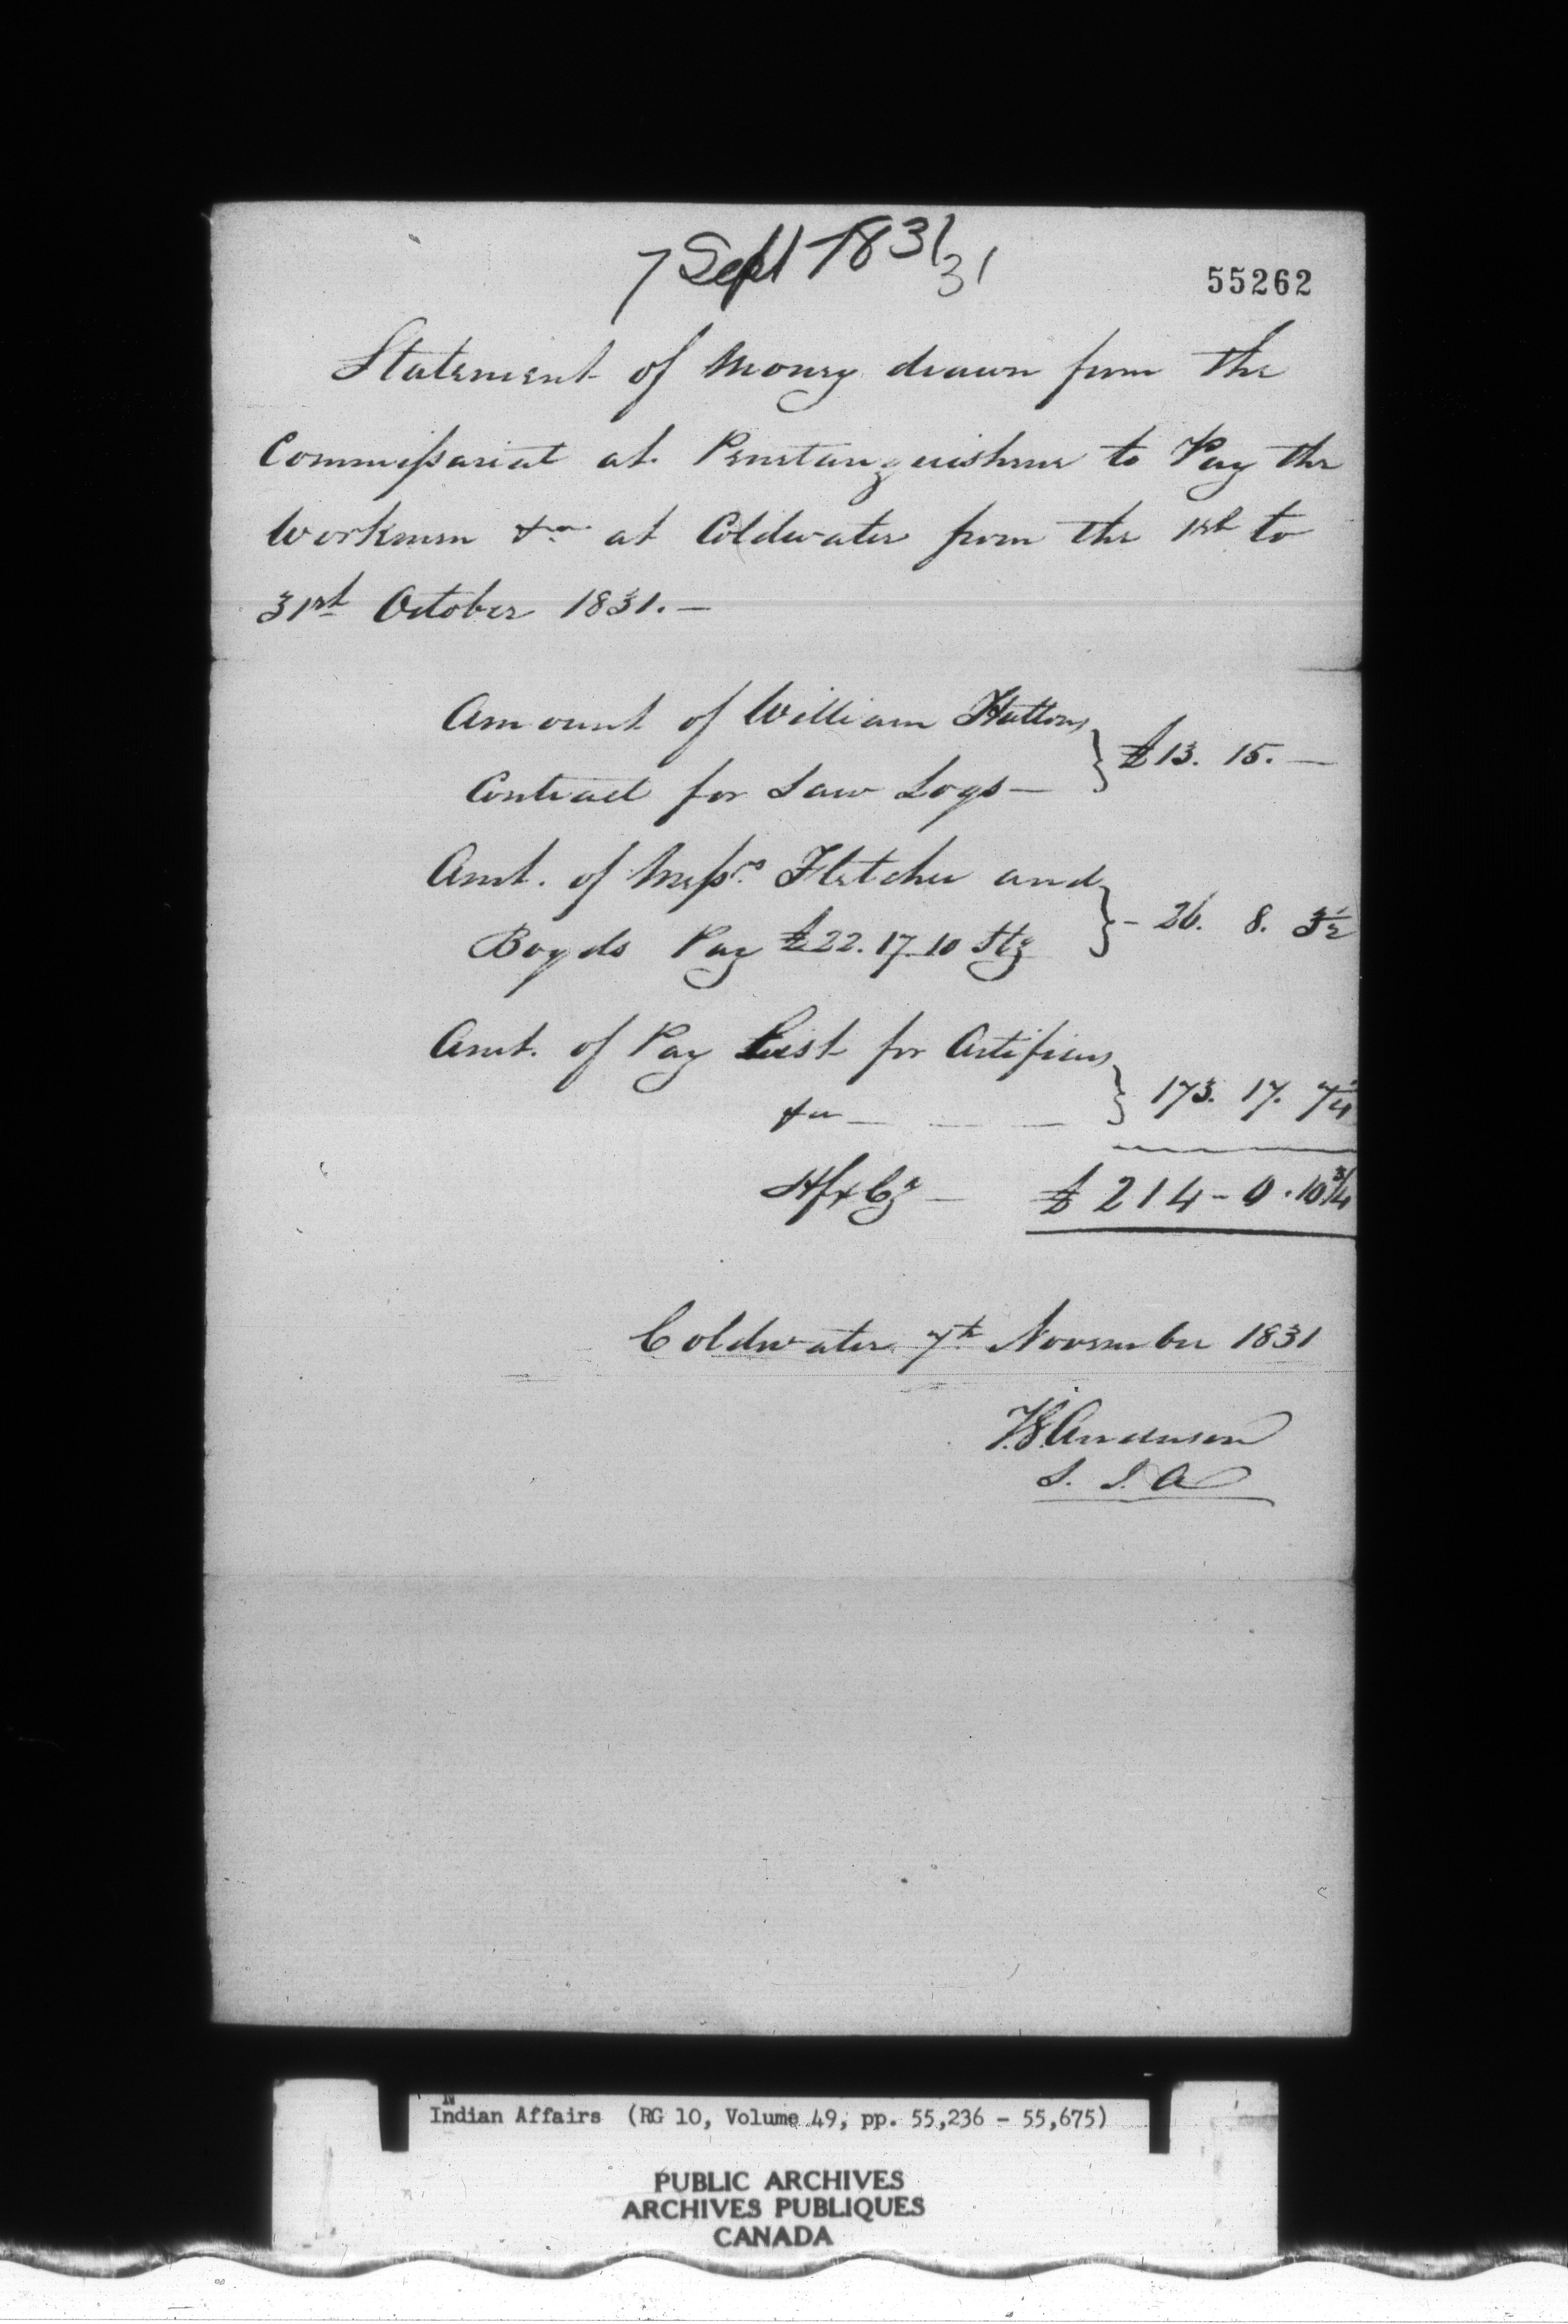 7 Sept 1831
31
55262
Statement of Money drawn from the
Commissariat at Penetanguishene to Pay the
Workmen &c at Coldwater from the 1st to
31st October 1831.—
Amount of William Huttons
Contract for Saw Logs—
} £13. 15. —
Amt. of Messrs. Fletcher and
Boyds Pay £22.17.10 Stg
} - 26. 8. 3 1/2
Amt. of Pay List for Artificers
&c — — —
} 173. 17. 7 1/4
Hfx Cy — £214-0.10 3/4
Coldwater 7th November 1831
T.G. Anderson
S. I. A
Indian Affairs (RG 10, Volume 49, pp. 55,236 - 55,675)
PUBLIC ARCHIVES
ARCHIVES PUBLIQUES
CANADA